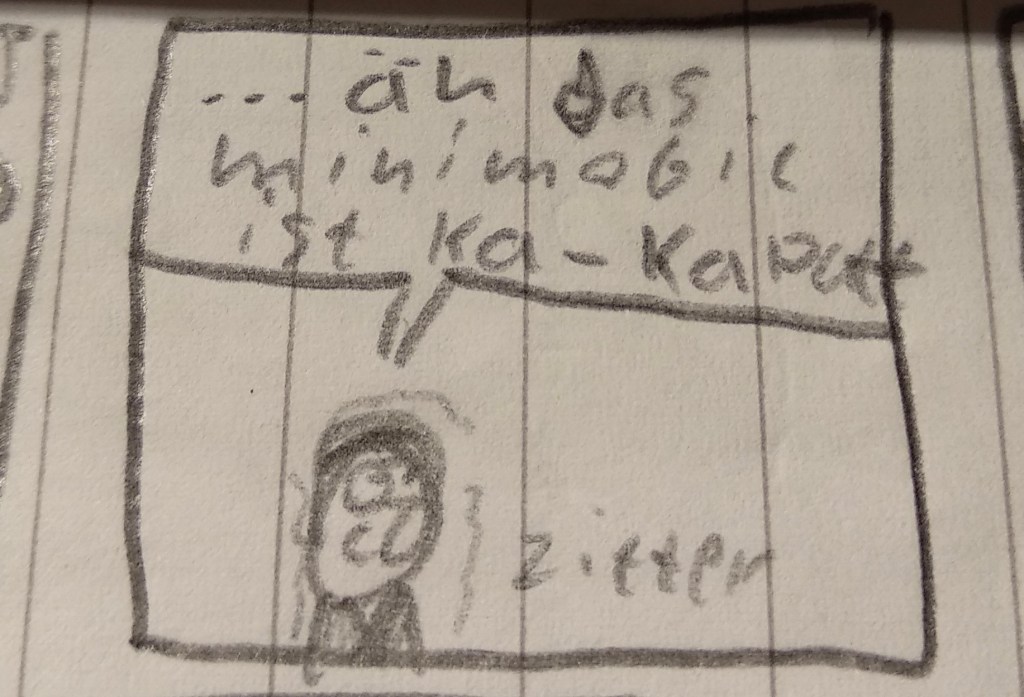 ... äh das
minimobil
ist ka-kaputt
zitter